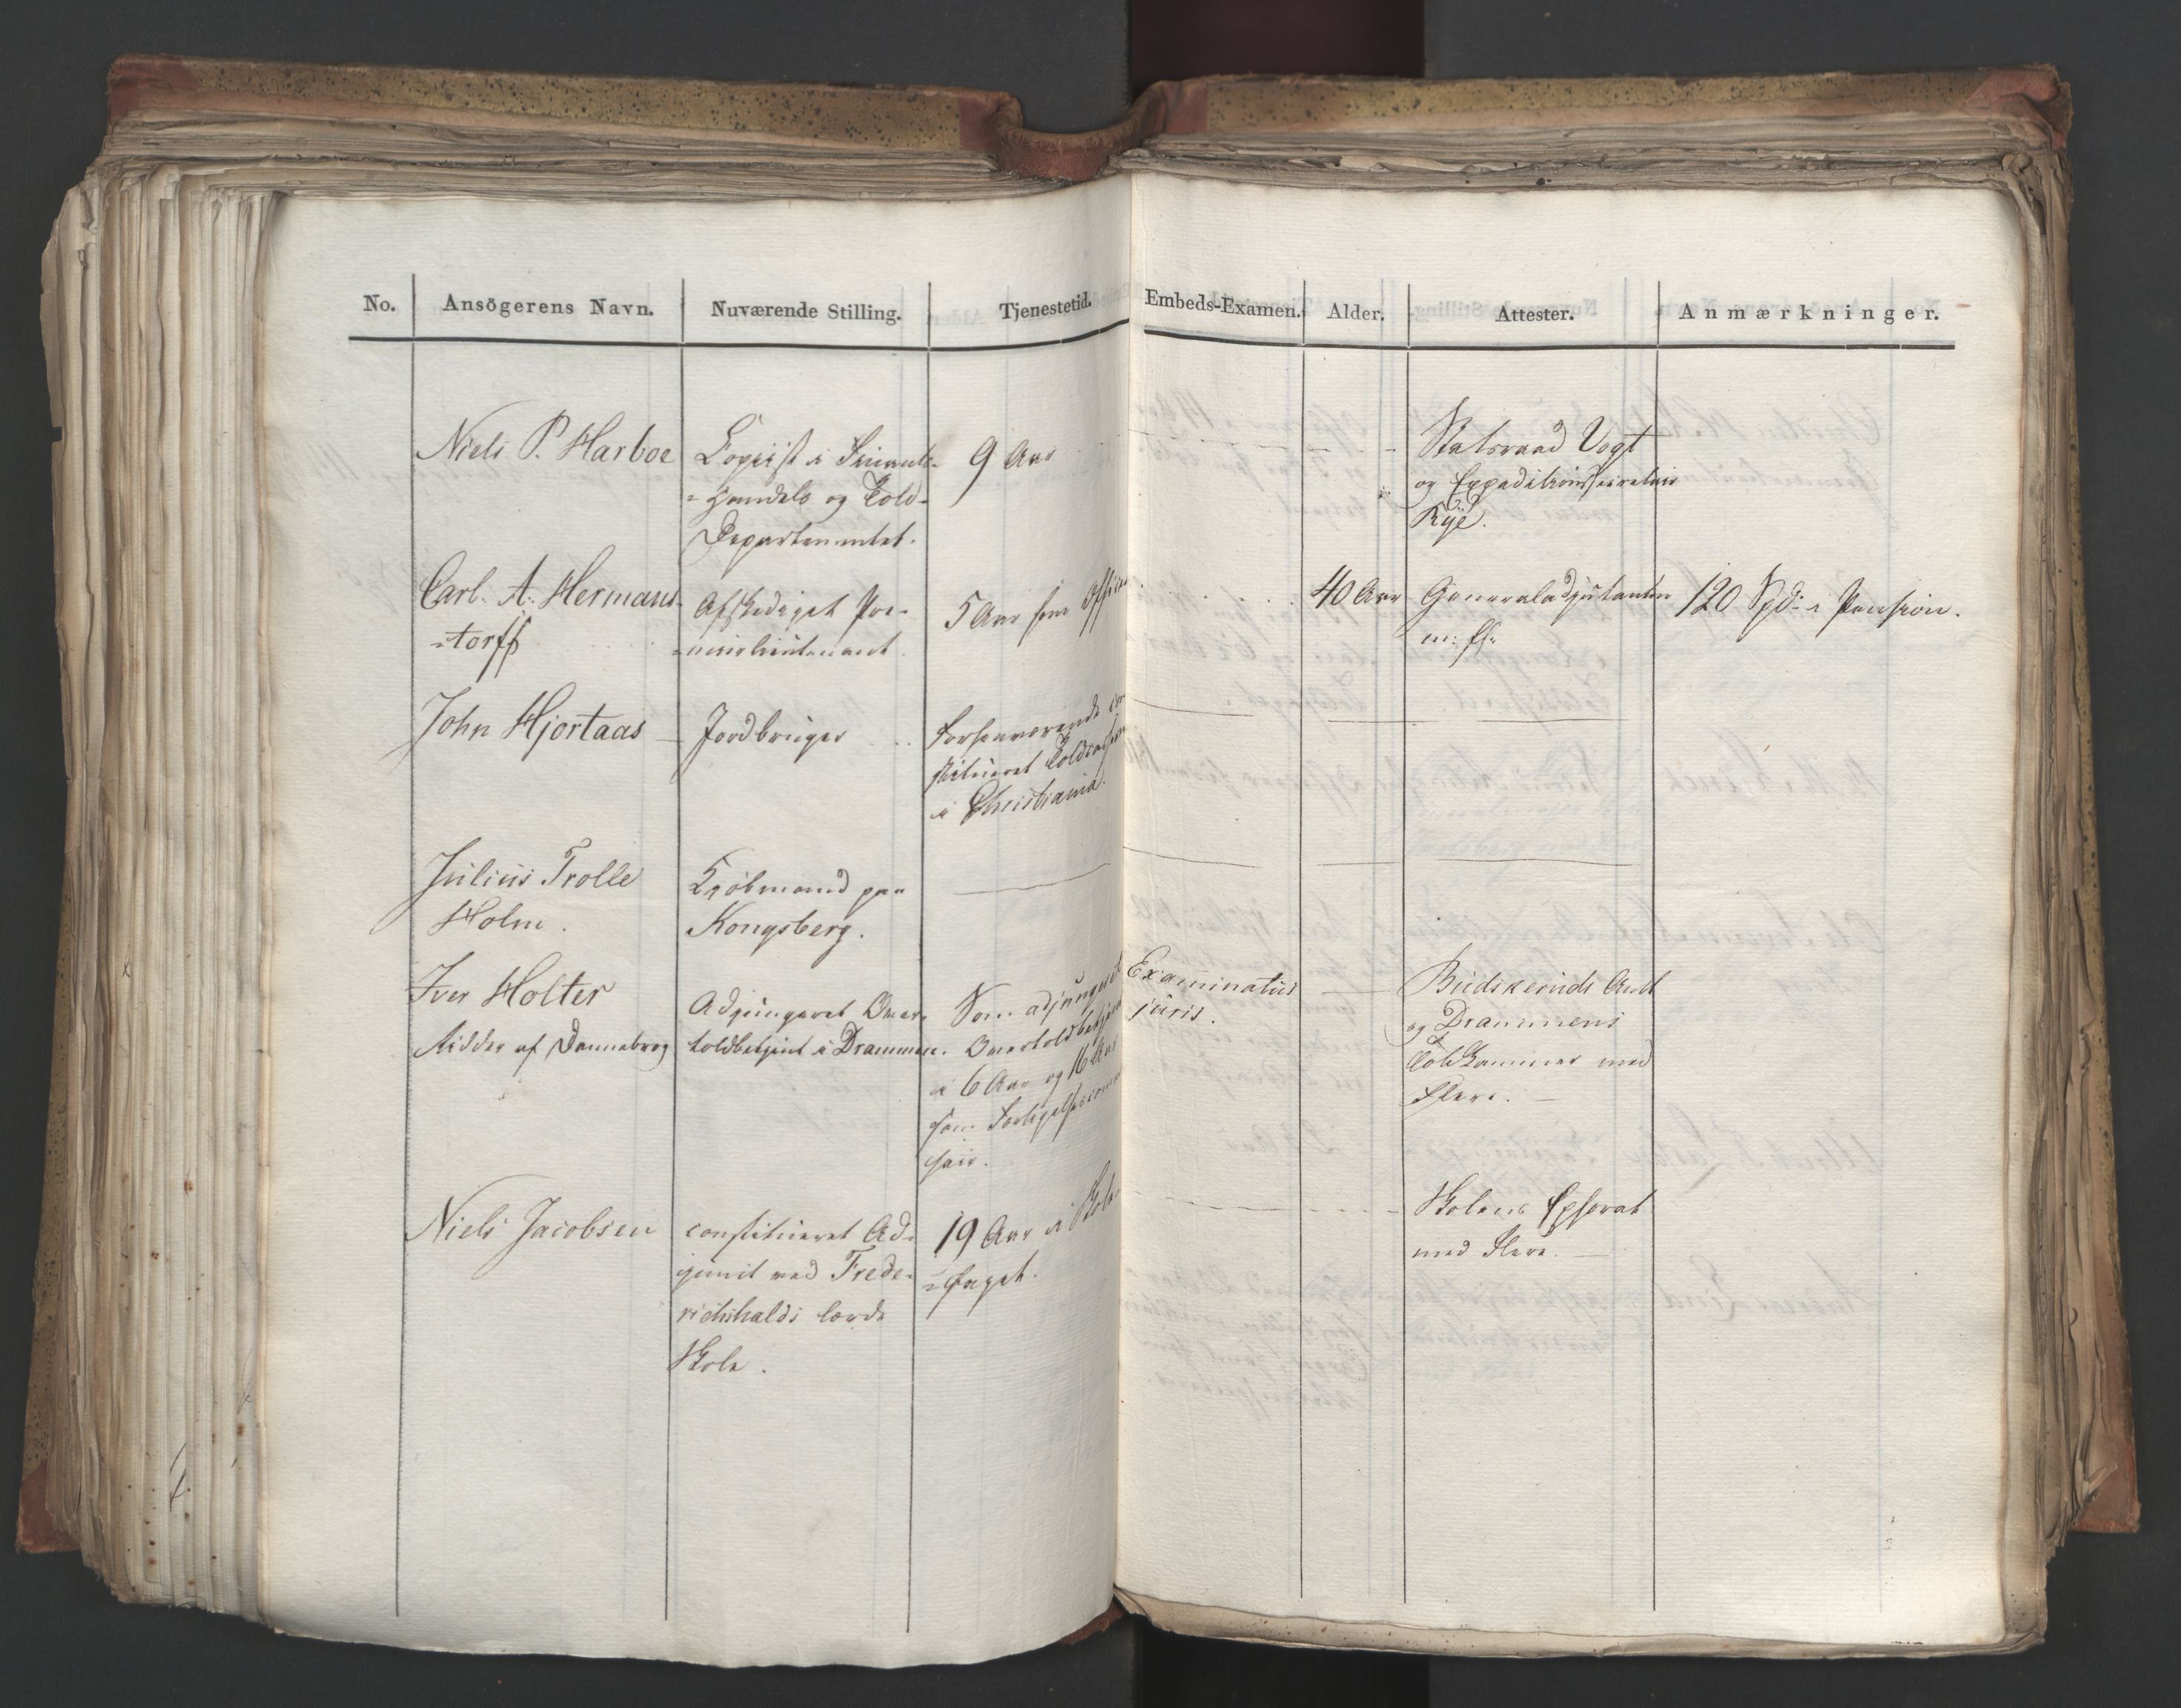 No. Ansögerens Navn. Nuværende Stilling. Tjenestetid. Embeds-Examen. Alder. Attester. Anmærkninger.
Niels P. Harboe
Copiist i Finants-
=Handels og Told-
Departementet.
9 Aar
Statsraad Vogt
og Expeditionssecretair
Rye.
Carl. A. Hermans-
=torff
Afskediget Pre-
=mierlieutenant.
5 Aar som
40 Aar
Generaladjutanten
m: fl:
120 Spd: i Pension.
John Hjortaas
Jordbruger
Forhenværende
stitueret
i Christiania.
Julius Trolle
Holm.
Kjöbmand paa
Kongsberg.
Iver Holter
Ridder af Dannebrog
Adjungeret Over-
toldbetjent i Drammen.
Som adjungeret
Overtoldbetjent
i 6 Aar og 16 Aar
som
sair.
Examinatus
juris.
Buskeruds Amt
og Drammens
Toldkammer med
Flere.
Niels Jacobsen
constitueret Ad-
junct ved Frede-
richshalds lærde
Skole.
19 Aar i Skole-
=faget.
Skolens Ephorat
med Flere.